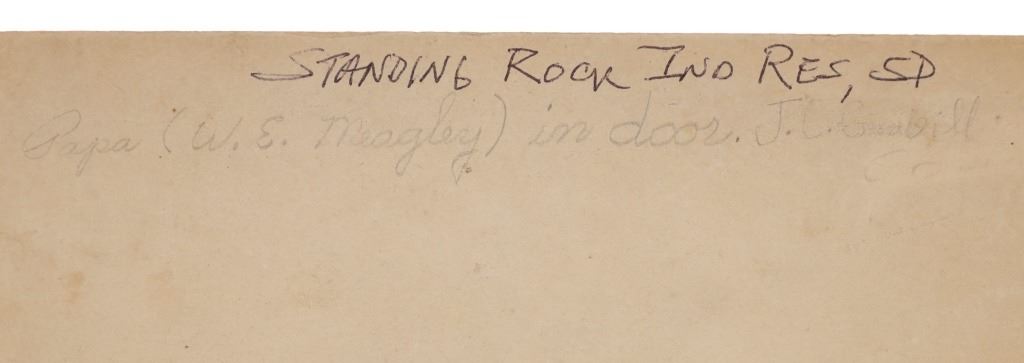 STANDING ROCK IND RES, SD
Papa (W. E. Meagley) in door. J. C.